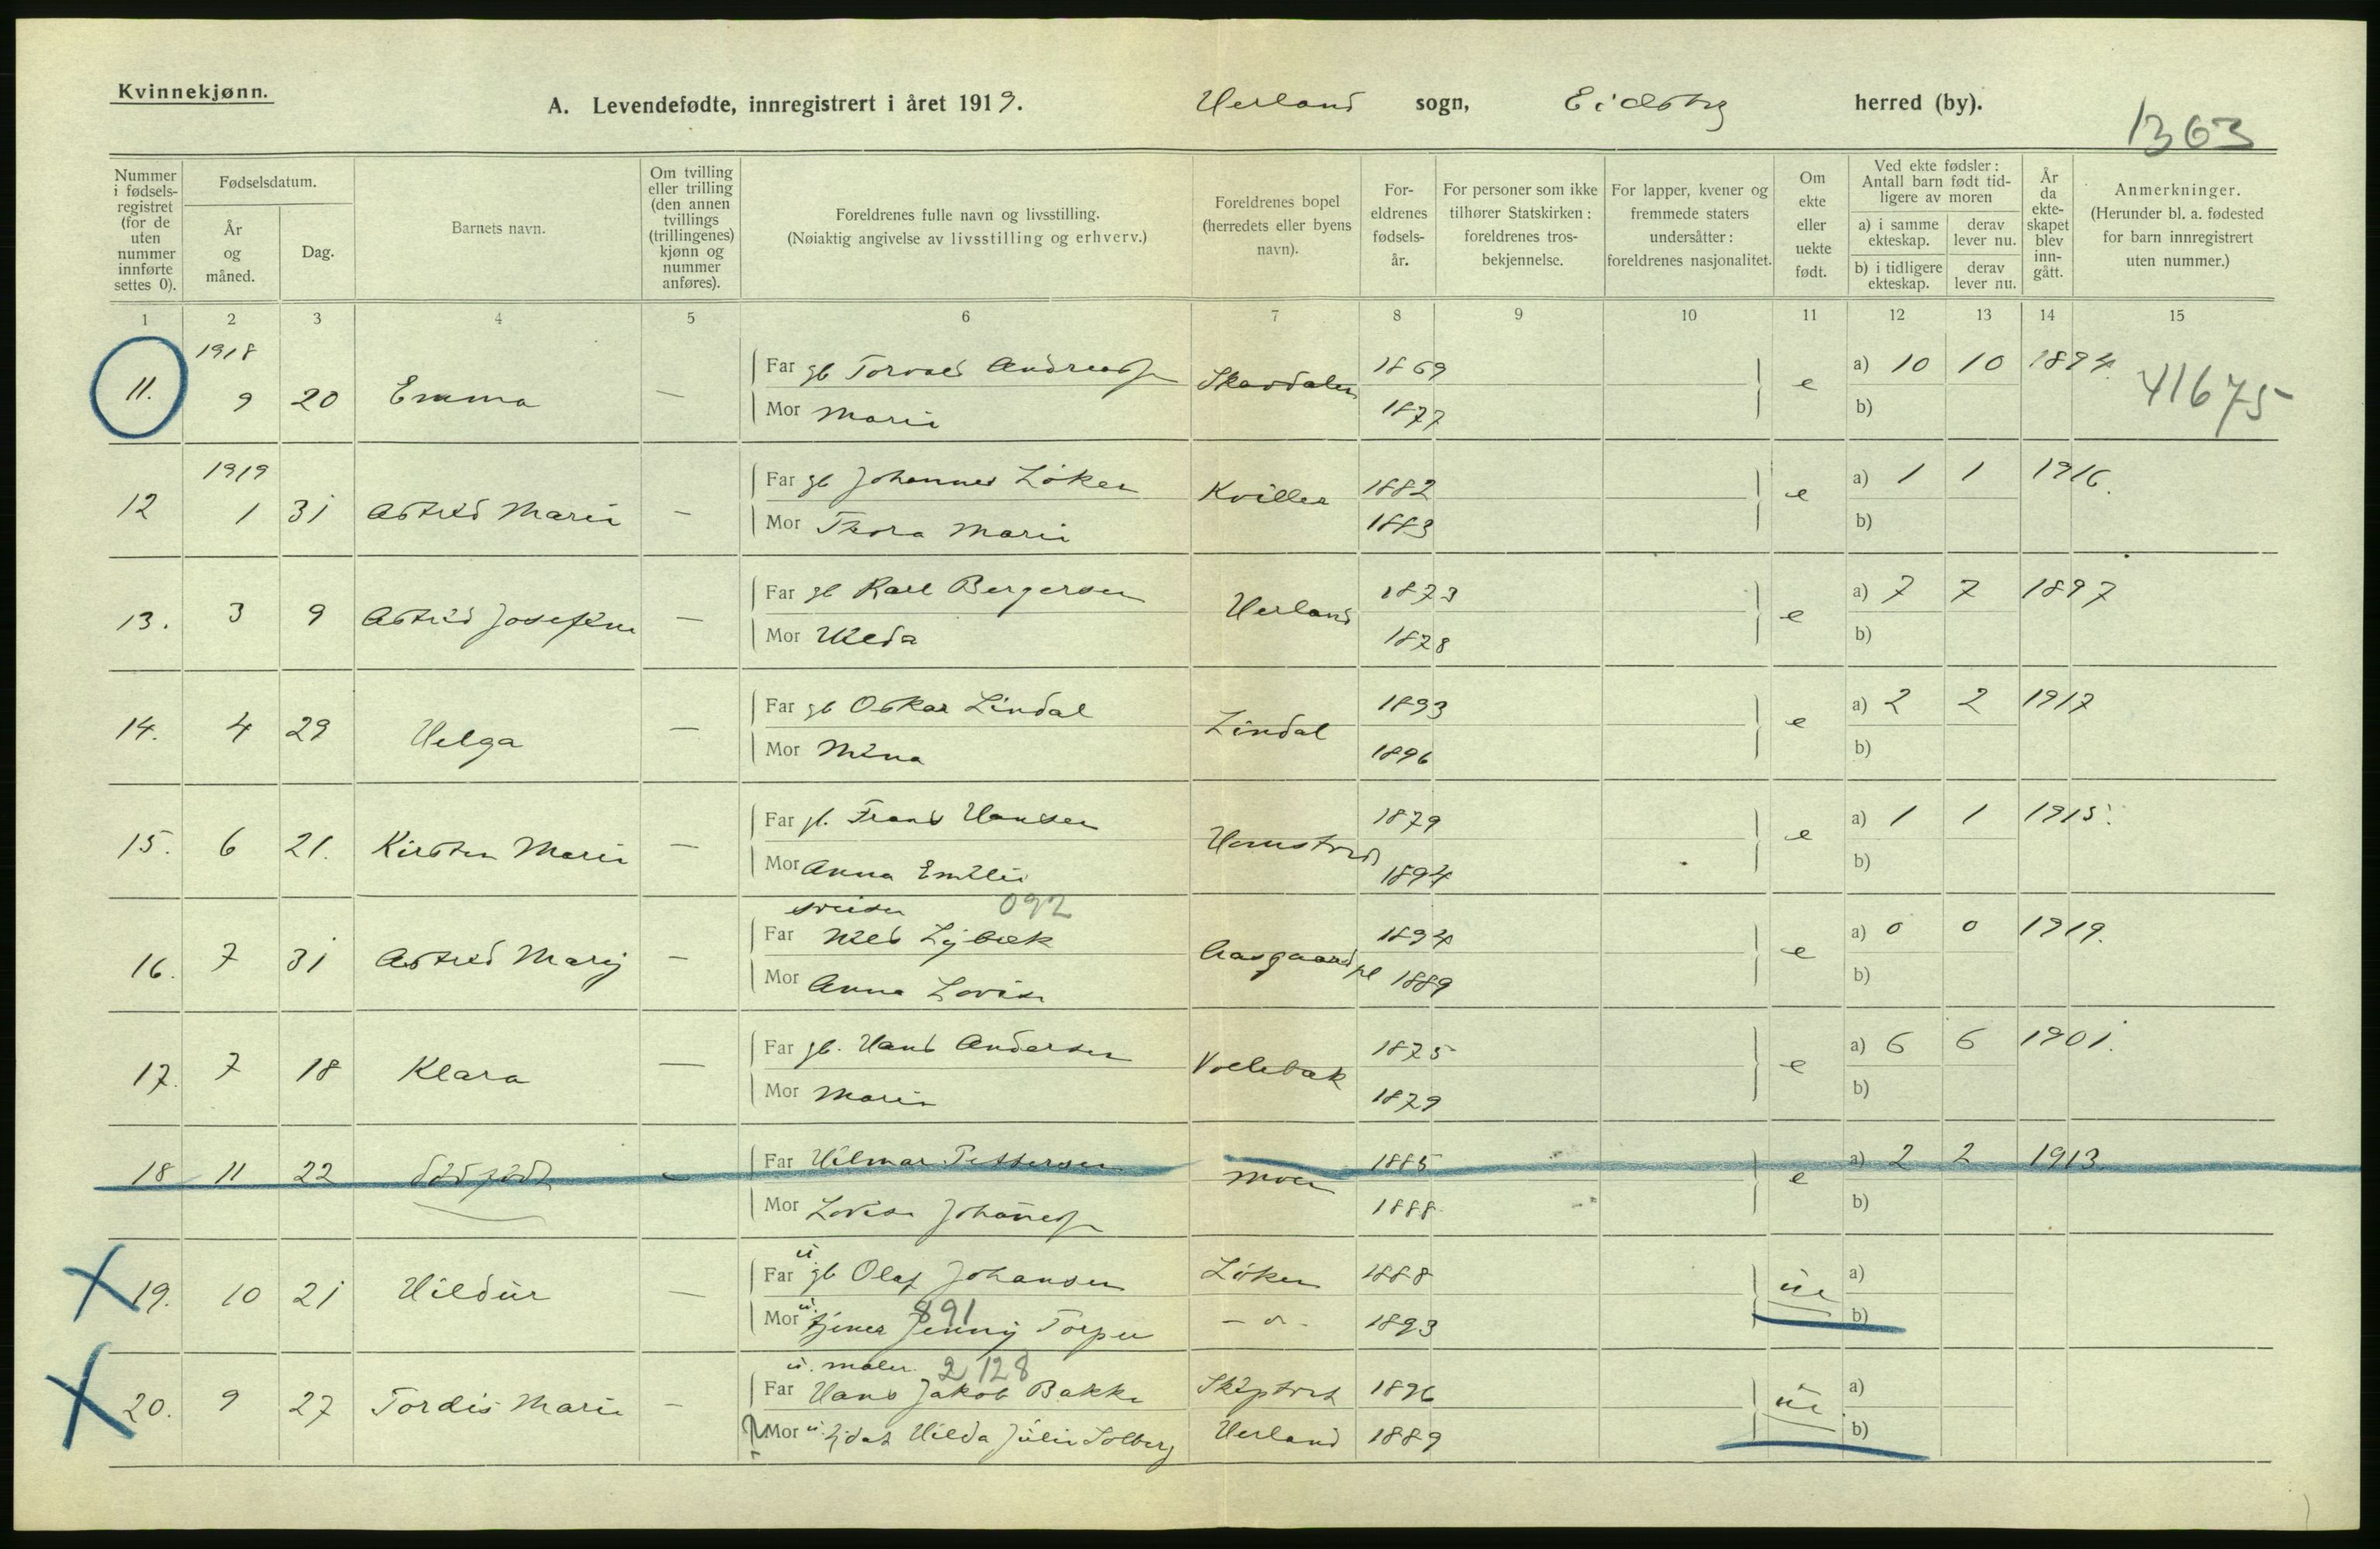 Kvinnekjønn.
A. Levendefødte, innregistrert i året 1919. Herland sogn, Eidsbg herred (by).
1363
Nummer i fødselsregistret (for de uten nummer innførte settes 0).
Fødselsdatum.
År og måned.
Dag.
Barnets navn.
Om tvilling eller trilling (den annen tvillings (trillingenes) kjønn og nummer anføres).
Foreldrenes fulle navn og livsstilling.
(Nøiaktig angivelse av livsstilling og erhverv.)
Foreldrenes bopel (herredets eller byens navn).
Foreldrenes fødselsår.
For personer som ikke tilhører Statskirken: foreldrenes trosbekjennelse.
For lapper, kvener og fremmede staters undersåtter: foreldrenes nasjonalitet.
Om ekte eller uekte født.
Ved ekte fødsler: Antall barn født tidligere av moren
a) i samme ekteskap. derav lever nu.
b) i tidligere ekteskap. derav lever nu.
År da ekteskapet blev inngått.
Anmerkninger.
(Herunder bl. a. fødested for barn innregistrert uten nummer.)
1 2 3 4 5 6 7 8 9 10 11 12 13 14 15
1918
11. 9 20 Emma — Far gb Torvald Andreassn Skavdalen 1869 e a) 10 10 1894.
Mor Marie 1877 b)
41675
1919
12 1 31 Astrid Marie — Far gb Johannes Löken Kviller 1882 e a) 1 1 1916.
Mor Thora Marie 1883 b)
13. 3 9 Astrid Josefine — Far gb Karl Bergersen Herland 1873 e a) 7 7 1897
Mor Hilda 1878 b)
14. 4 29 Helga — Far gb Oskar Lindal Lindal 1893 e a) 2 2 1917
Mor Mina 1896 b)
15. 6 21. Kirsten Marie — Far gb. Frans Hansen 1879 e a) 1 1 1915.
Mor Anna Emilie 1894 b)
sveiser 092
16. 7 31 Astrid Mary — Far Nils Lybæk Aasgaard pl 1894 e a) 0 0 1919.
Mor Anna Lovise 1889 b)
17. 7 18 Klara — Far gb. Hans Andersen Vollebæk 1875 e a) 6 6 1901.
Mor Marie 1879 b)
18 11 22 dödfödt – Far Hilmar Pettersen Moen 1885 e a) 2 2 1913
Mor Lovise Johannessn 1888 b)
19. 10 21 Hildur — Far u gb Olaf Johansen Löken 1888 ue a)
891
Mor u. tjener Jenny Torper – " – 1893 b)
u. maler 2128
20. 9 27 Tordis Marie — Far Hans Jakob Bakke 1896 ue a)
Mor u. Hilda Julie Solberg Herland 1889 b)